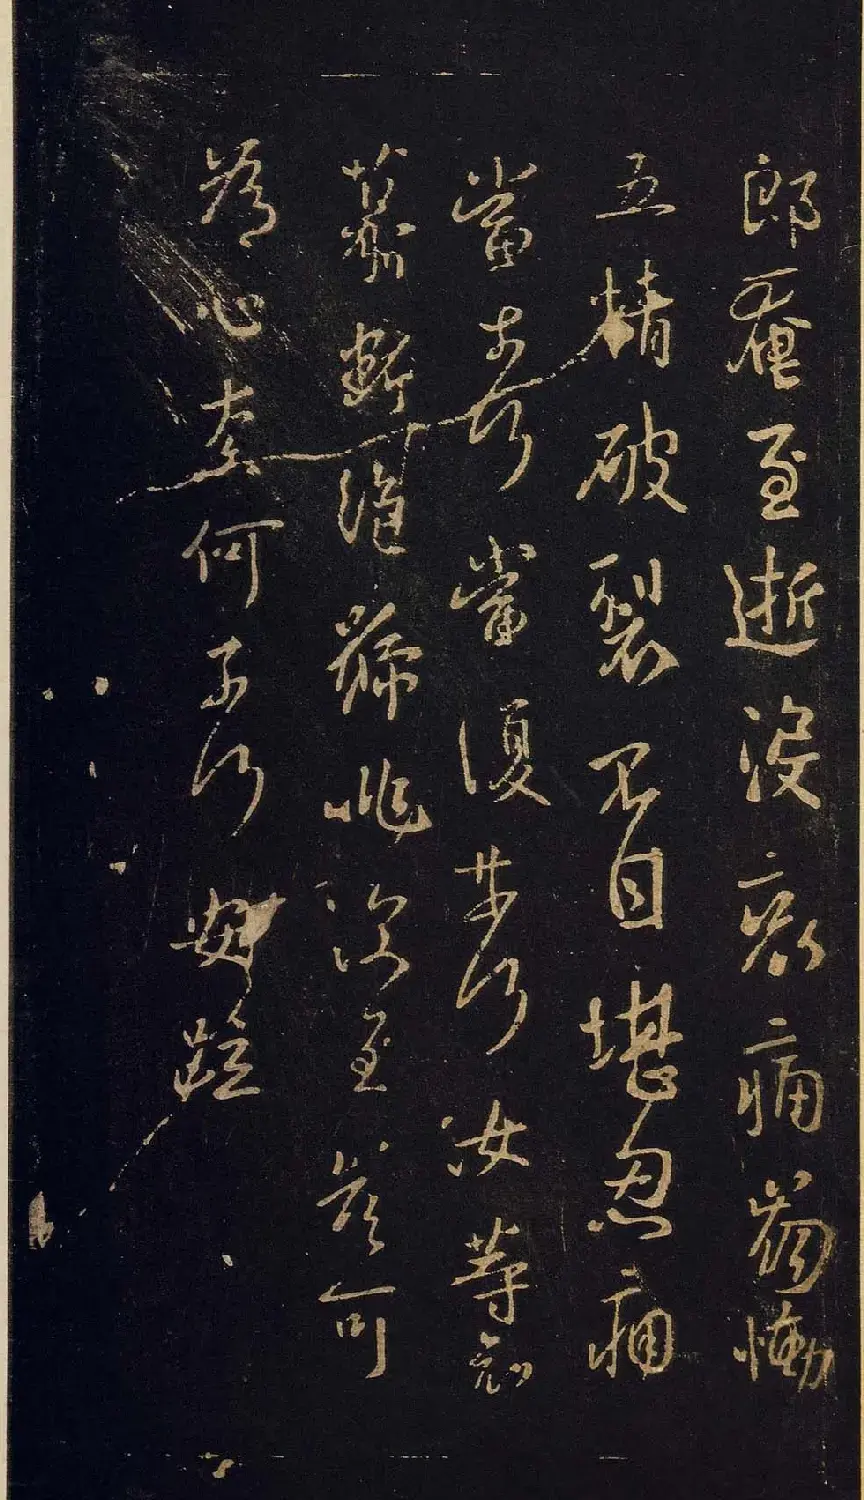 郎奄至逝沒哀痛崩慟
五情破裂不自堪忍痛
當奈何當復奈何汝等哀
慕斷絕號咷深至豈可
為心奈何奈何